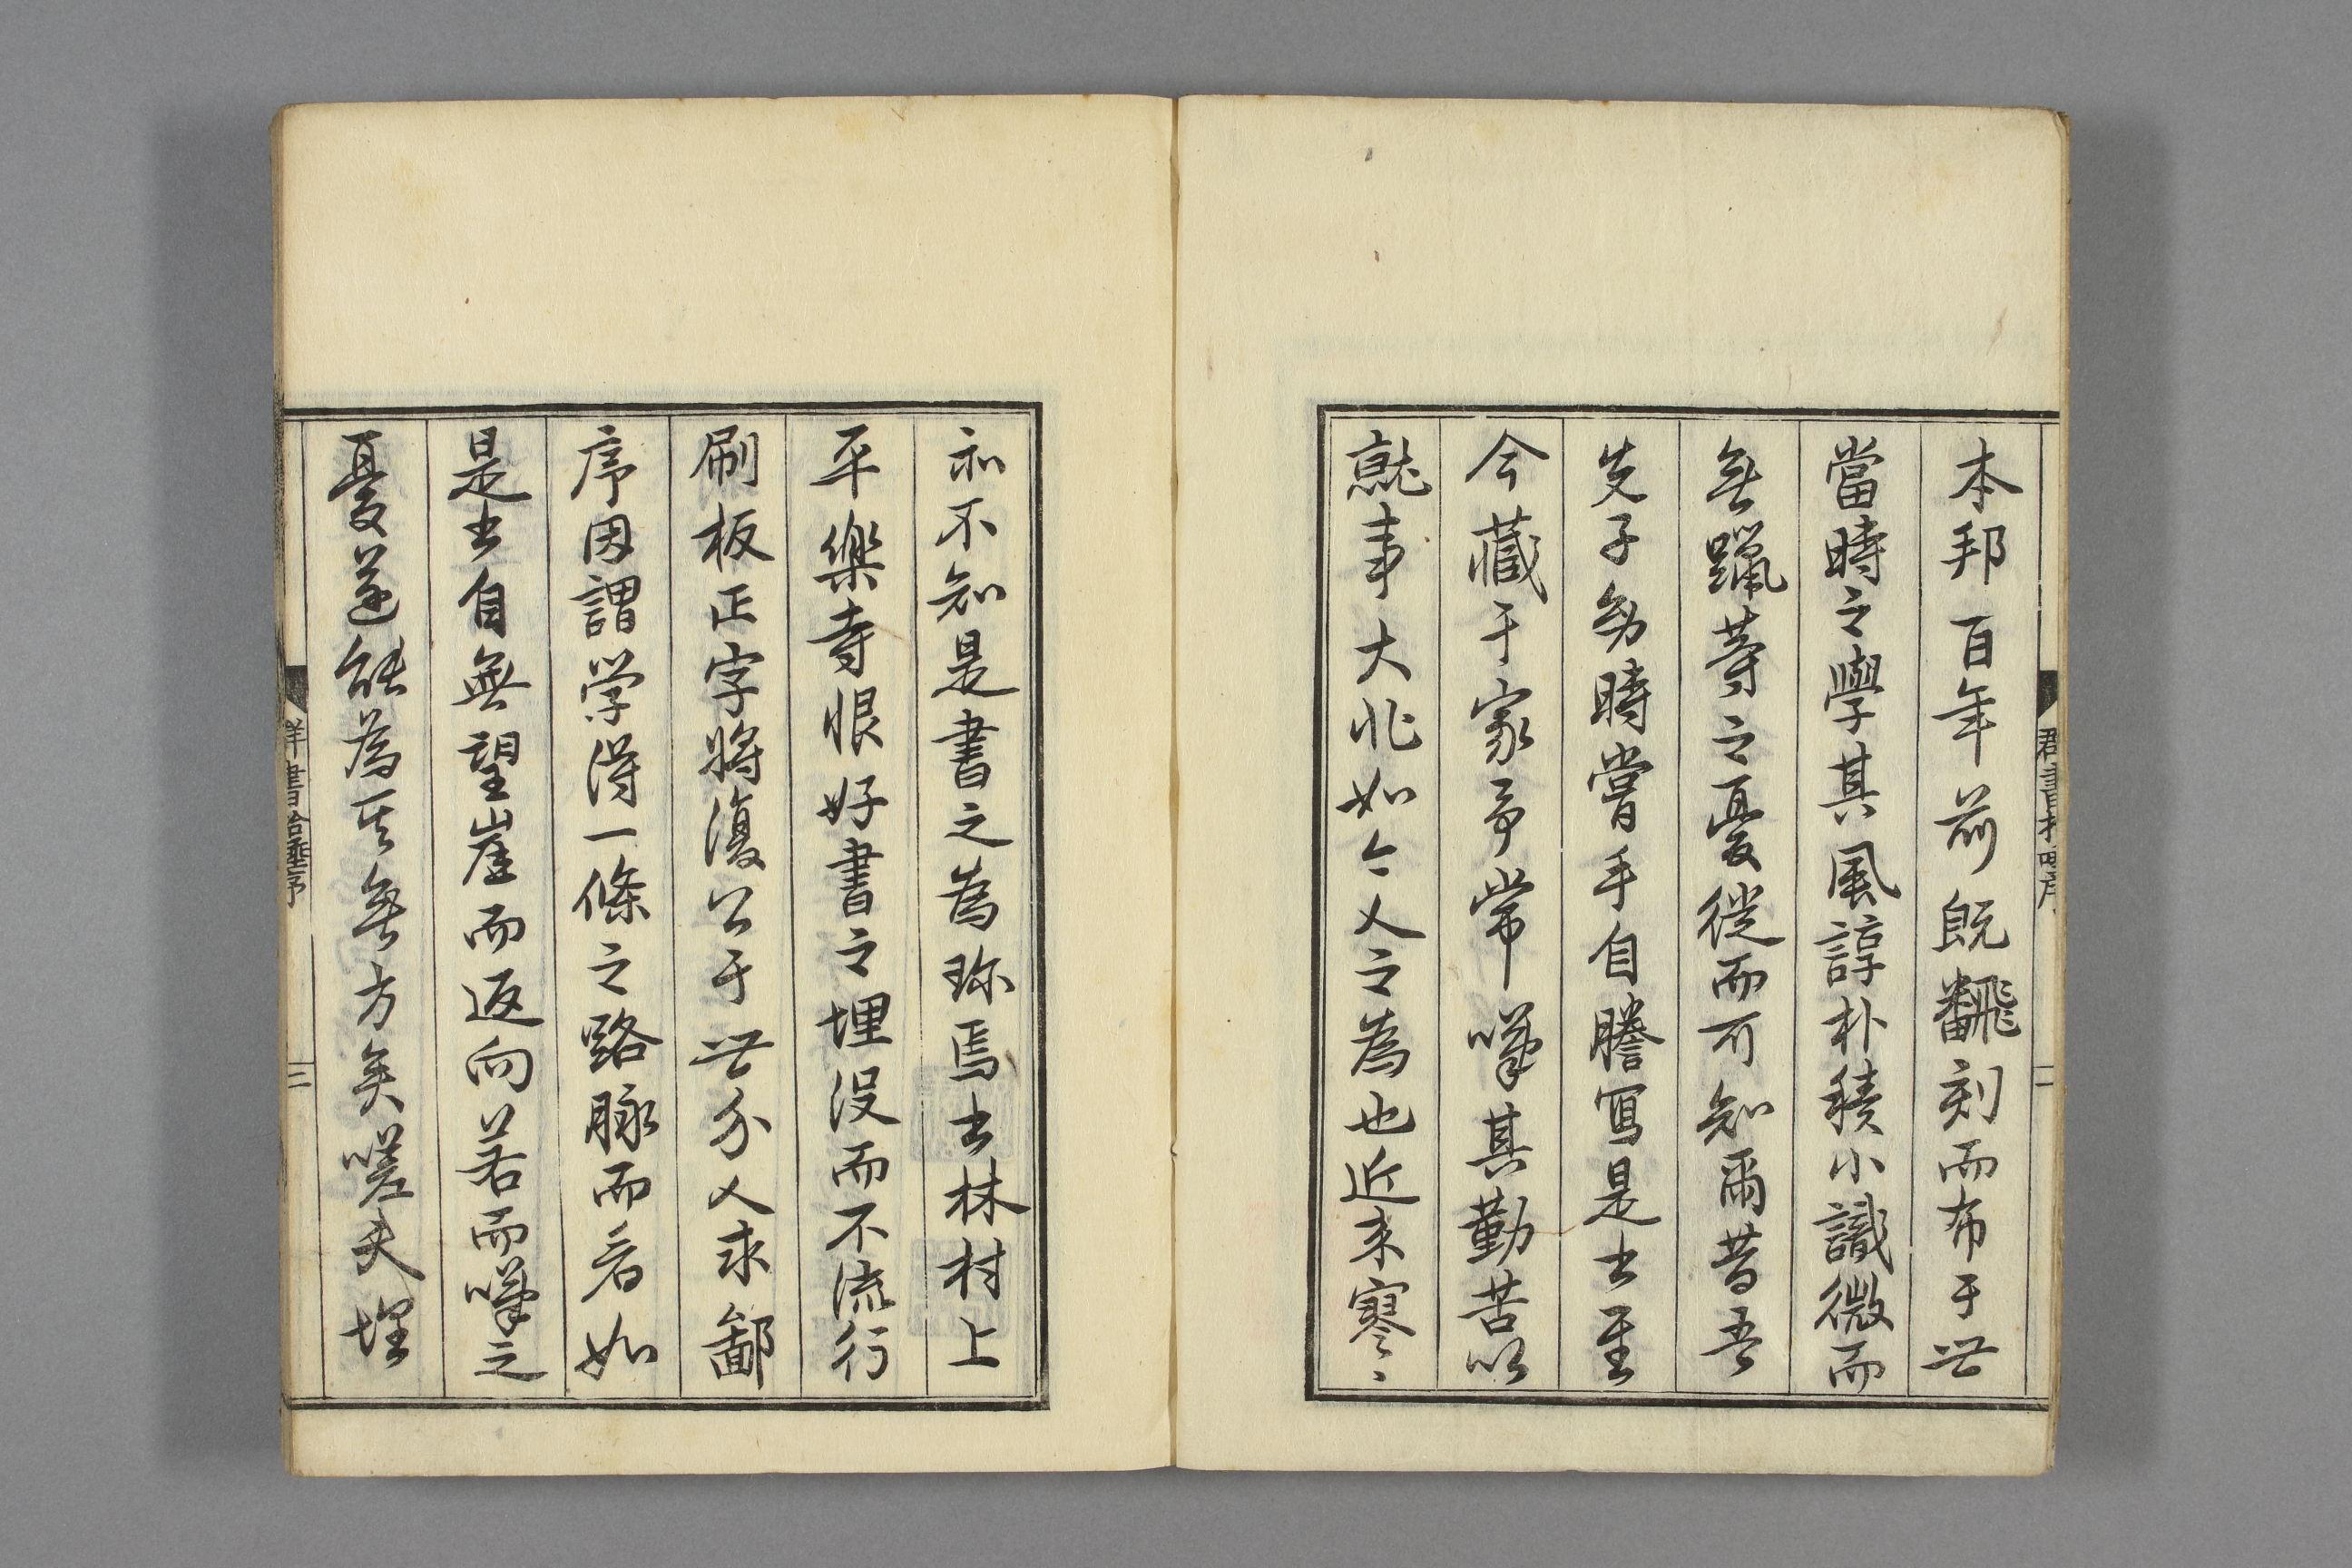 本邦百年前既飜刻而布于世
當時之學其風諄朴積小識微而
無躐等之憂從而可知爾昔吾
先子幼時嘗手自謄寫是書至
今藏于家予常嘆其勤苦以
就事大非如今人之為也近来寥〻
而不知是書之為珎焉書林村上
平樂寺恨好書之埋没而不流行
刷板正字將復公于世介人求鄙
序因謂学得一條之路脉而看如
是書自無望崖而返向若而嘆之
憂遂能為其無方矣嗟夫埋